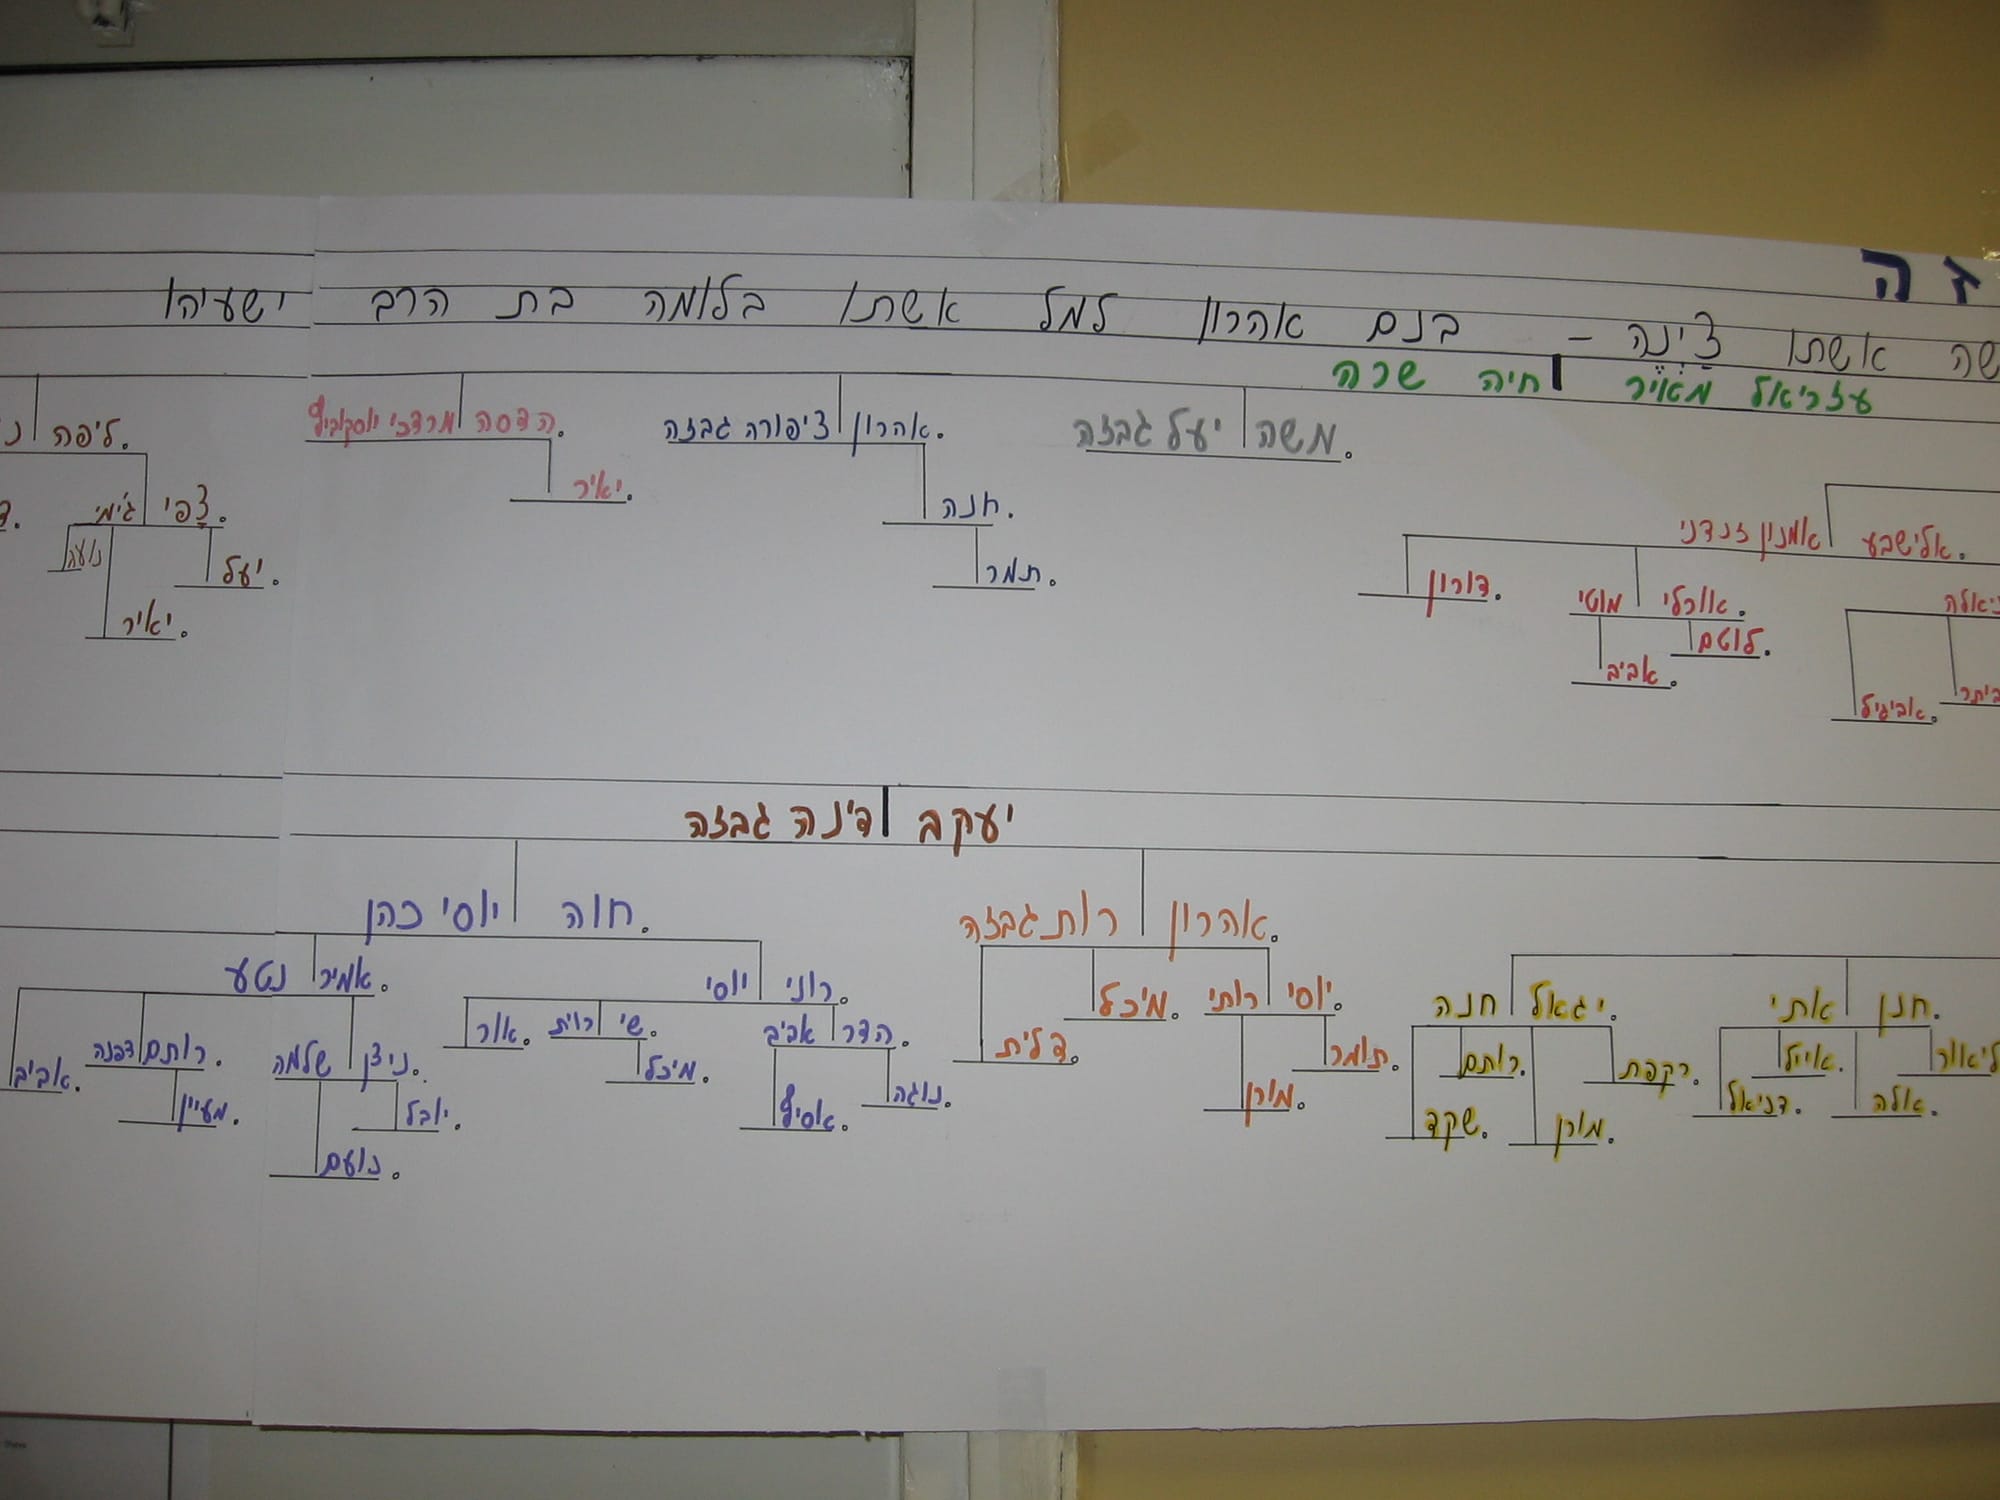 זה
שה אשתו צ'ינה - בנם אהרון למל אשתו בלומה בת הרב ישעיהו
עזריאל מאיר חיה שרה
משה יעל גבזה.
אהרון ציפורה גבזה.
הדסה מרדכי יוסקוביץ.
ליפה
חנה.
יאיר.
צפי ג'ימי.
תמר.
יעל.
נועה
יאיר.
אלישבע אמנון זנדני.
יאלה
אורלי מוטי.
דורון.
לוטם.
אביב.
ביתר
אביגיל.
יעקב דינה גבזה
אהרון רות גבזה.
חוה יוסי כהן.
חנן אתי.
יגאל חנה.
יוסי רותי.
מיכל.
רוני יוסי.
אמיר נטע.
ליאור
אייל.
אלה.
דניאל.
רקפת.
רותם.
מורן.
שקד.
תומר.
מורן.
דלית.
הדר אביב.
שי רוית.
אור.
נוגה.
אסיף.
מיכל.
ניצן שלמה.
רותם דפנה.
אביב.
יובל.
נועם.
מעיין.